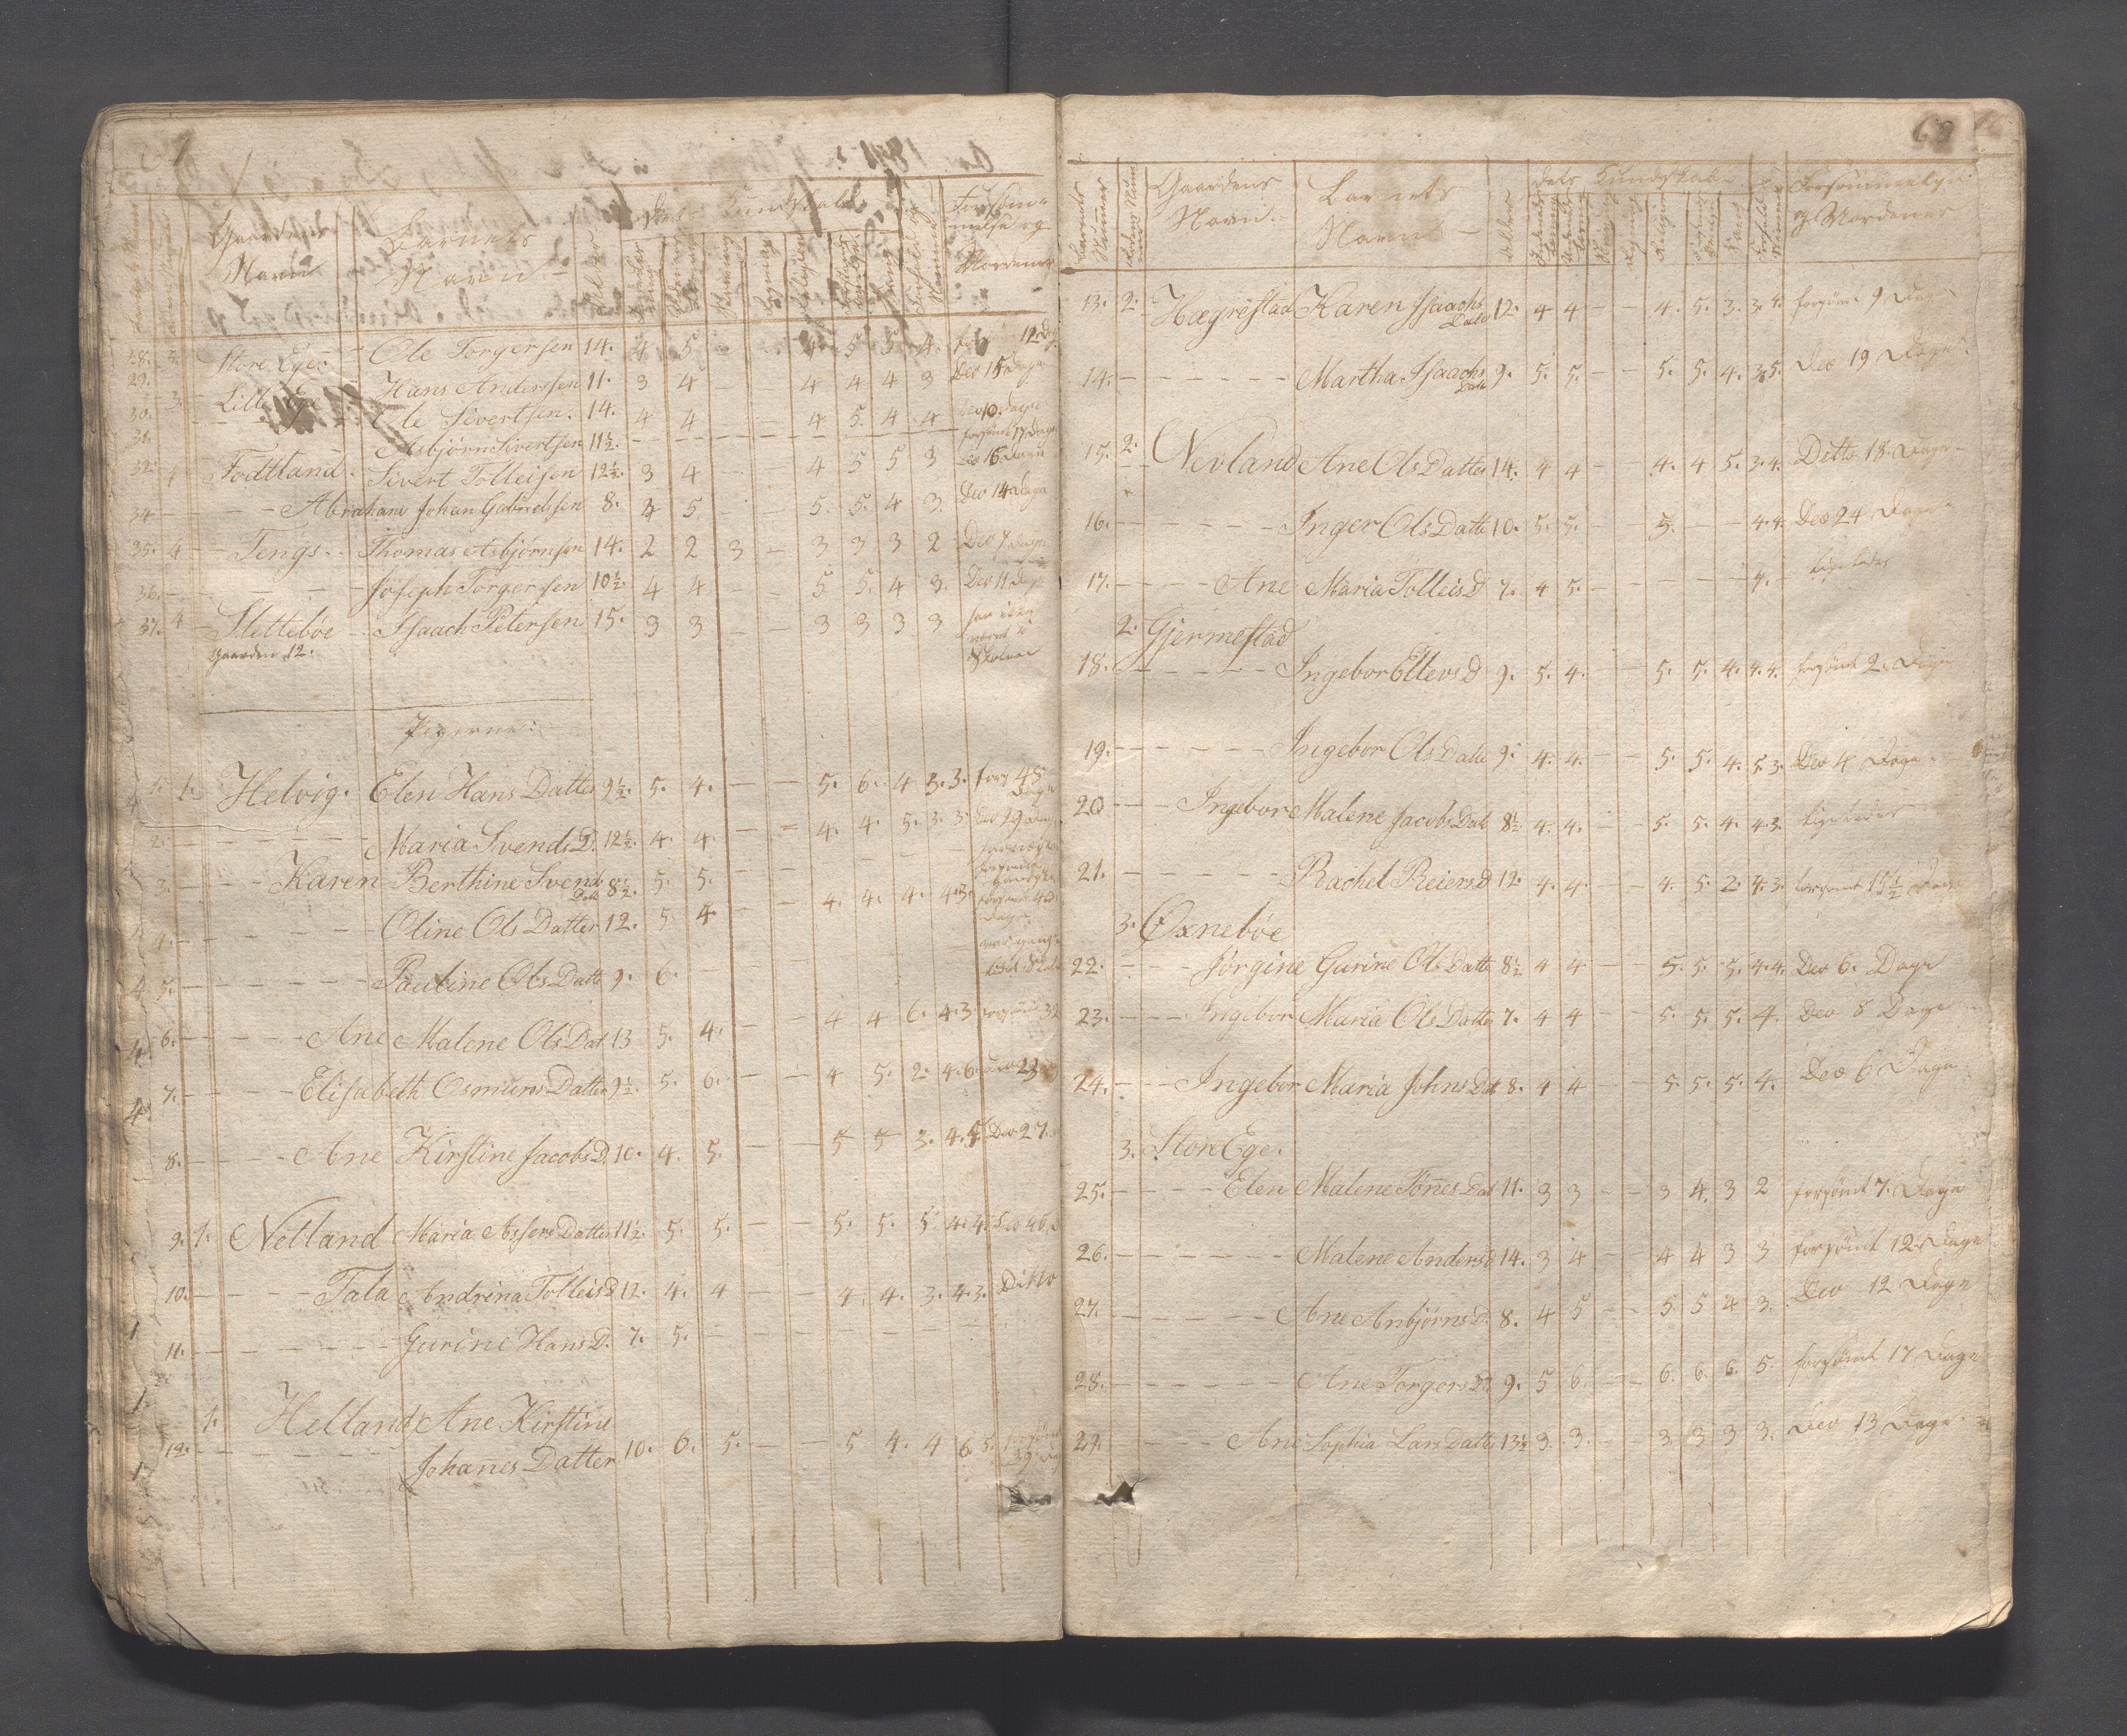 Gaardens Navn Barnets Navn Alder Kundskab
28. 3. Store Ege Ole Torgersen 14. 4 5 - - 4. 5 5 4. 12 Dage
29. 3. Lille Ege Hans Anderssen 11. 3 4 - - 4 4 4 3 Dto 15 Dage
30. Ole Sivertsen. 14. 4 4 - - 4 5. 4. 4 Dto 10 Dage
31. Asbjørn Sivertsen 11½. forsømt 17 Dage
32. 4 Fodtland. Sivert Tolleisen 12½. 3 4 - - 4 5 5 3 Dto 16 Dage
34 - Abraham Johan Gabrielsen 8. 4 5. - - 5. 5. 4 3. Dto 14 Dage
35. 4 - Tengs. Thomas Asbjørnsen 14. 2 2 3 - 3 3 3 2 Dto 7 Dage
36. Joseph Torgersen 10½. 4 4 - - 5 5. 4 3. Dto 11 Dage
37. 4 Slettebøe - Isaach Petersen 15. 3 3 - - 3 3 3 3 har ikke været i Skolen
Gaarden 12.
Pigerne:
1. 1. Helvig. Elen Hans Datter 9½. 5. 4. - - 5. 6. 4 3. 3. fors 48 Dage
2. Maria Svends D. 12½. 4. 4. - - 4. 4. 5. 3. 3. Dto 29 Dage
3. Karen Berthine Svends Datt 8½. 5. 5. - -
4. Oline Ols Datter 12. 5. 4. - - 4. 4. 4. 4.3. forsømt
5. Pauline Ols Datte 9. 6.
6. Ane Malene Ols Dat 13 5. 4. - - 4 4 6. 4.3 forsømt 32
7. Elisabeth Osmuns Datter 9½. 5. 6. - - 4 5. 2. 4.6. Dto 23
8. Ane Kirstine Jacobs D. 10. 4. 5. - - 5 5 3. 4.4 Dto 27.
9. 1. Netland Maria Assers Datter 11½. 5. 5. - - 5. 5. 5 4.4. Dto 46
10. Tala Andrina Tolleis D 12. 4. 4 - - 4. 4. 3. 4.3. Ditto
11. Gurine Hans D. 7. 5.
1. Helland Ane Kirstine
12. Johanes Datter 10. 6. 5. - - 5 4. 4 6.5. forsømt 39
68
Barnets Nummer Gaardens Navn. Barnets Navn Alder Kundskab Forsømmelser
13. 2. Hægrestad Karen Isaachs Datte 12. 4 4 - - 4. 5. 3. 3.4. forsømt 9 Dage
14. Martha Isaachs Datte 9. 5. 5. - - 5. 5. 4. 3.5. Dto 19 Dage.
15. 2. Nevland Ane Ols Datter 14. 4 4 - - 4. 4 5. 3.4. Ditto 18 Dage
16. Inger Ols Datte 10. 5. 5. - - 5. - - 4.4. Dto 24 Dage
17. Ane Maria Tolleis D 7. 4 5. - - - - - 4. - ligeledes
2. Gjermestad
18. Ingebor Ellevs D 9. 5. 4. - - 5. 5. 4. 4.4. forsømt 2 Dage
19. Ingebor Ols Datte 9. 4. 4. - - 5. 5. 4. 5.3. Dto 4 Dage
20 Ingebor Malene Jacobs Datt 8½ 4. 4. - - 5. 5. 4. 4.3. ligeledes
21. Rachel Reiers D 12. 4. 4. - - 4. 5. 2. 4.3. forsømt 15½ Dage
3. Øxnebøe
22. Jørgine Gurine Ols Datte 8½ 4 4 - - 5. 5. 5. 4.4. Dto 6. Dage
23. Ingebor Maria Ols Datte 7. 4 4 - - 5. 5. 5. 4. Dto 8 Dage
24. Ingebor Maria Johns Dat 8. 4 4 - - 5. 5. 5. 4. Dto 6 Dage
3. Store Ege.
25. Elen Malene Tønes Dat 11. 3 3 - - 3 4. 3 2 forsømt 7. Dage
26. Malene Anders D 14. 3 4 - - 4 4 3 3 forsømt 12 Dage
27. Ane Anbjørns D. 8. 4 5 - - 5. 5 4 3. Dto 12 Dage
28. Ane Torgers D. 9. 5 6. - - 6. 6. 6. 5. forsømt 17 Dage
29. Ane Sophia Lars Datte 13½ 3. 3. - - 3 3 3 3. Dto 13 Dage